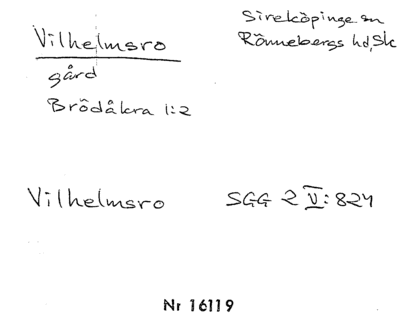 Vilhelmsro
gård
Brödåkra 1:2
Sireköpinge sn
Rönnebergs hd, Sk
Vilhelmsro SGG 2 V:824
Nr 16119